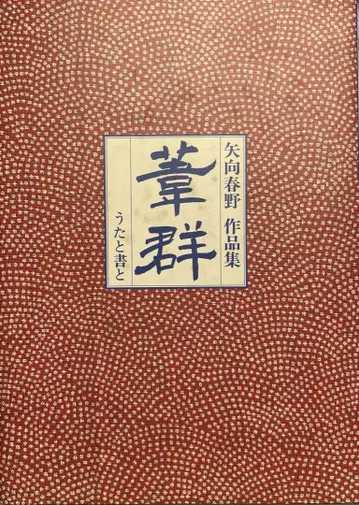 矢向春野 作品集
葦群
うたと書と